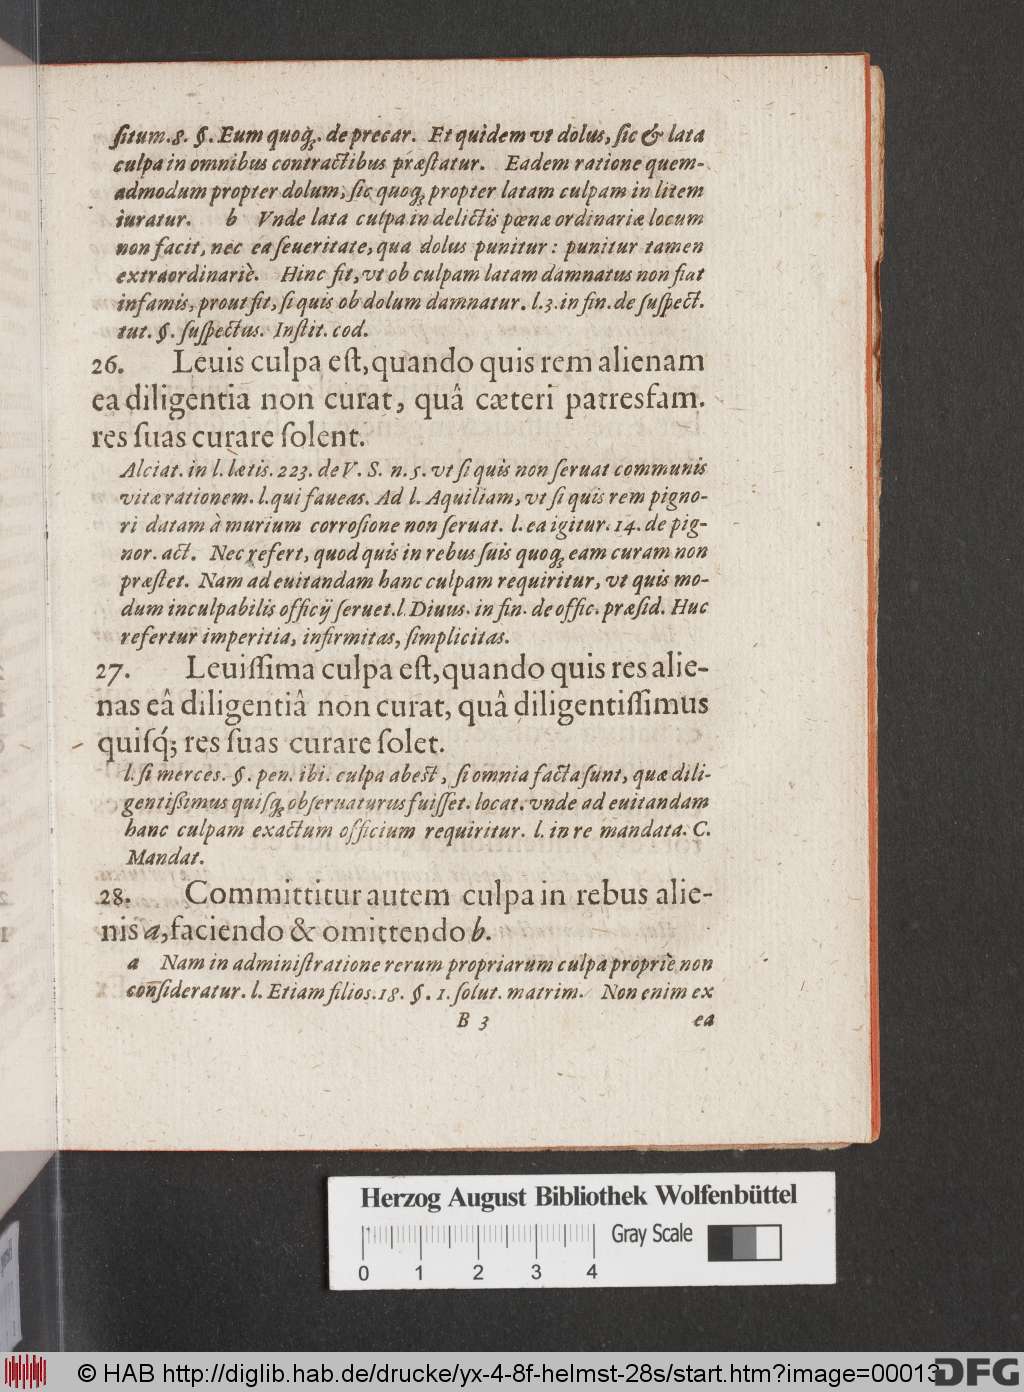 ſitum.8. §. Eum quoq́ꝫ. de precar. Et quidem vt dolus, ſic & lata
culpa in omnibus contractibus præſtatur. Eadem ratione quem-
admodum propter dolum, ſic quoqꝫ propter latam culpam in litem
iuratur. b Vnde lata culpa in delictis pœnæ ordinariæ locum
non facit, nec ea ſeueritate, qua dolus punitur: punitur tamen
extraordinariè. Hinc fit, vt ob culpam latam damnatus non fiat
infamis, prout fit, ſi quis ob dolum damnatur. l.3. in fin. de ſuſpect.
tut. §. ſuſpectus. Inſtit. eod.
26. Leuis culpa eſt, quando quis rem alienam
ea diligentia non curat, quâ cæteri patresfam.
res ſuas curare ſolent.
Alciat. in l. lætis. 223. de V. S. n. 5. vt ſi quis non ſeruat communis
vitæ rationem. l. qui faueas. Ad l. Aquiliam, vt ſi quis rem pigno-
ri datam à murium corroſione non ſeruat. l. ea igitur. 14. de pig-
nor. act. Nec refert, quod quis in rebus ſuis quoqꝫ eam curam non
præſtet. Nam ad euitandam hanc culpam requiritur, vt quis mo-
dum inculpabilis officij ſeruet. l. Diuus. in fin. de offic. præſid. Huc
refertur imperitia, infirmitas, ſimplicitas.
27. Leuiſſima culpa eſt, quando quis res alie-
nas eâ diligentiâ non curat, quâ diligentiſſimus
quiſq́ꝫ res ſuas curare ſolet.
l. ſi merces. §. pen. ibi. culpa abest, ſi omnia facta ſunt, quæ dili-
gentißimus quiſqꝫ obſeruaturus fuiſſet. locat. vnde ad euitandam
hanc culpam exactum officium requiritur. l. in re mandata. C.
Mandat.
28. Committitur autem culpa in rebus alie-
nis a, faciendo & omittendo b.
a Nam in adminiſtratione rerum propriarum culpa propriè non
conſideratur. l. Etiam filios. 18. §. 1. ſolut. matrim. Non enim ex
B 3 ea
Herzog August Bibliothek Wolfenbüttel
Gray Scale
0 1 2 3 4
© HAB http://diglib.hab.de/drucke/yx-4-8f-helmst-28s/start.htm?image=00013
DFG